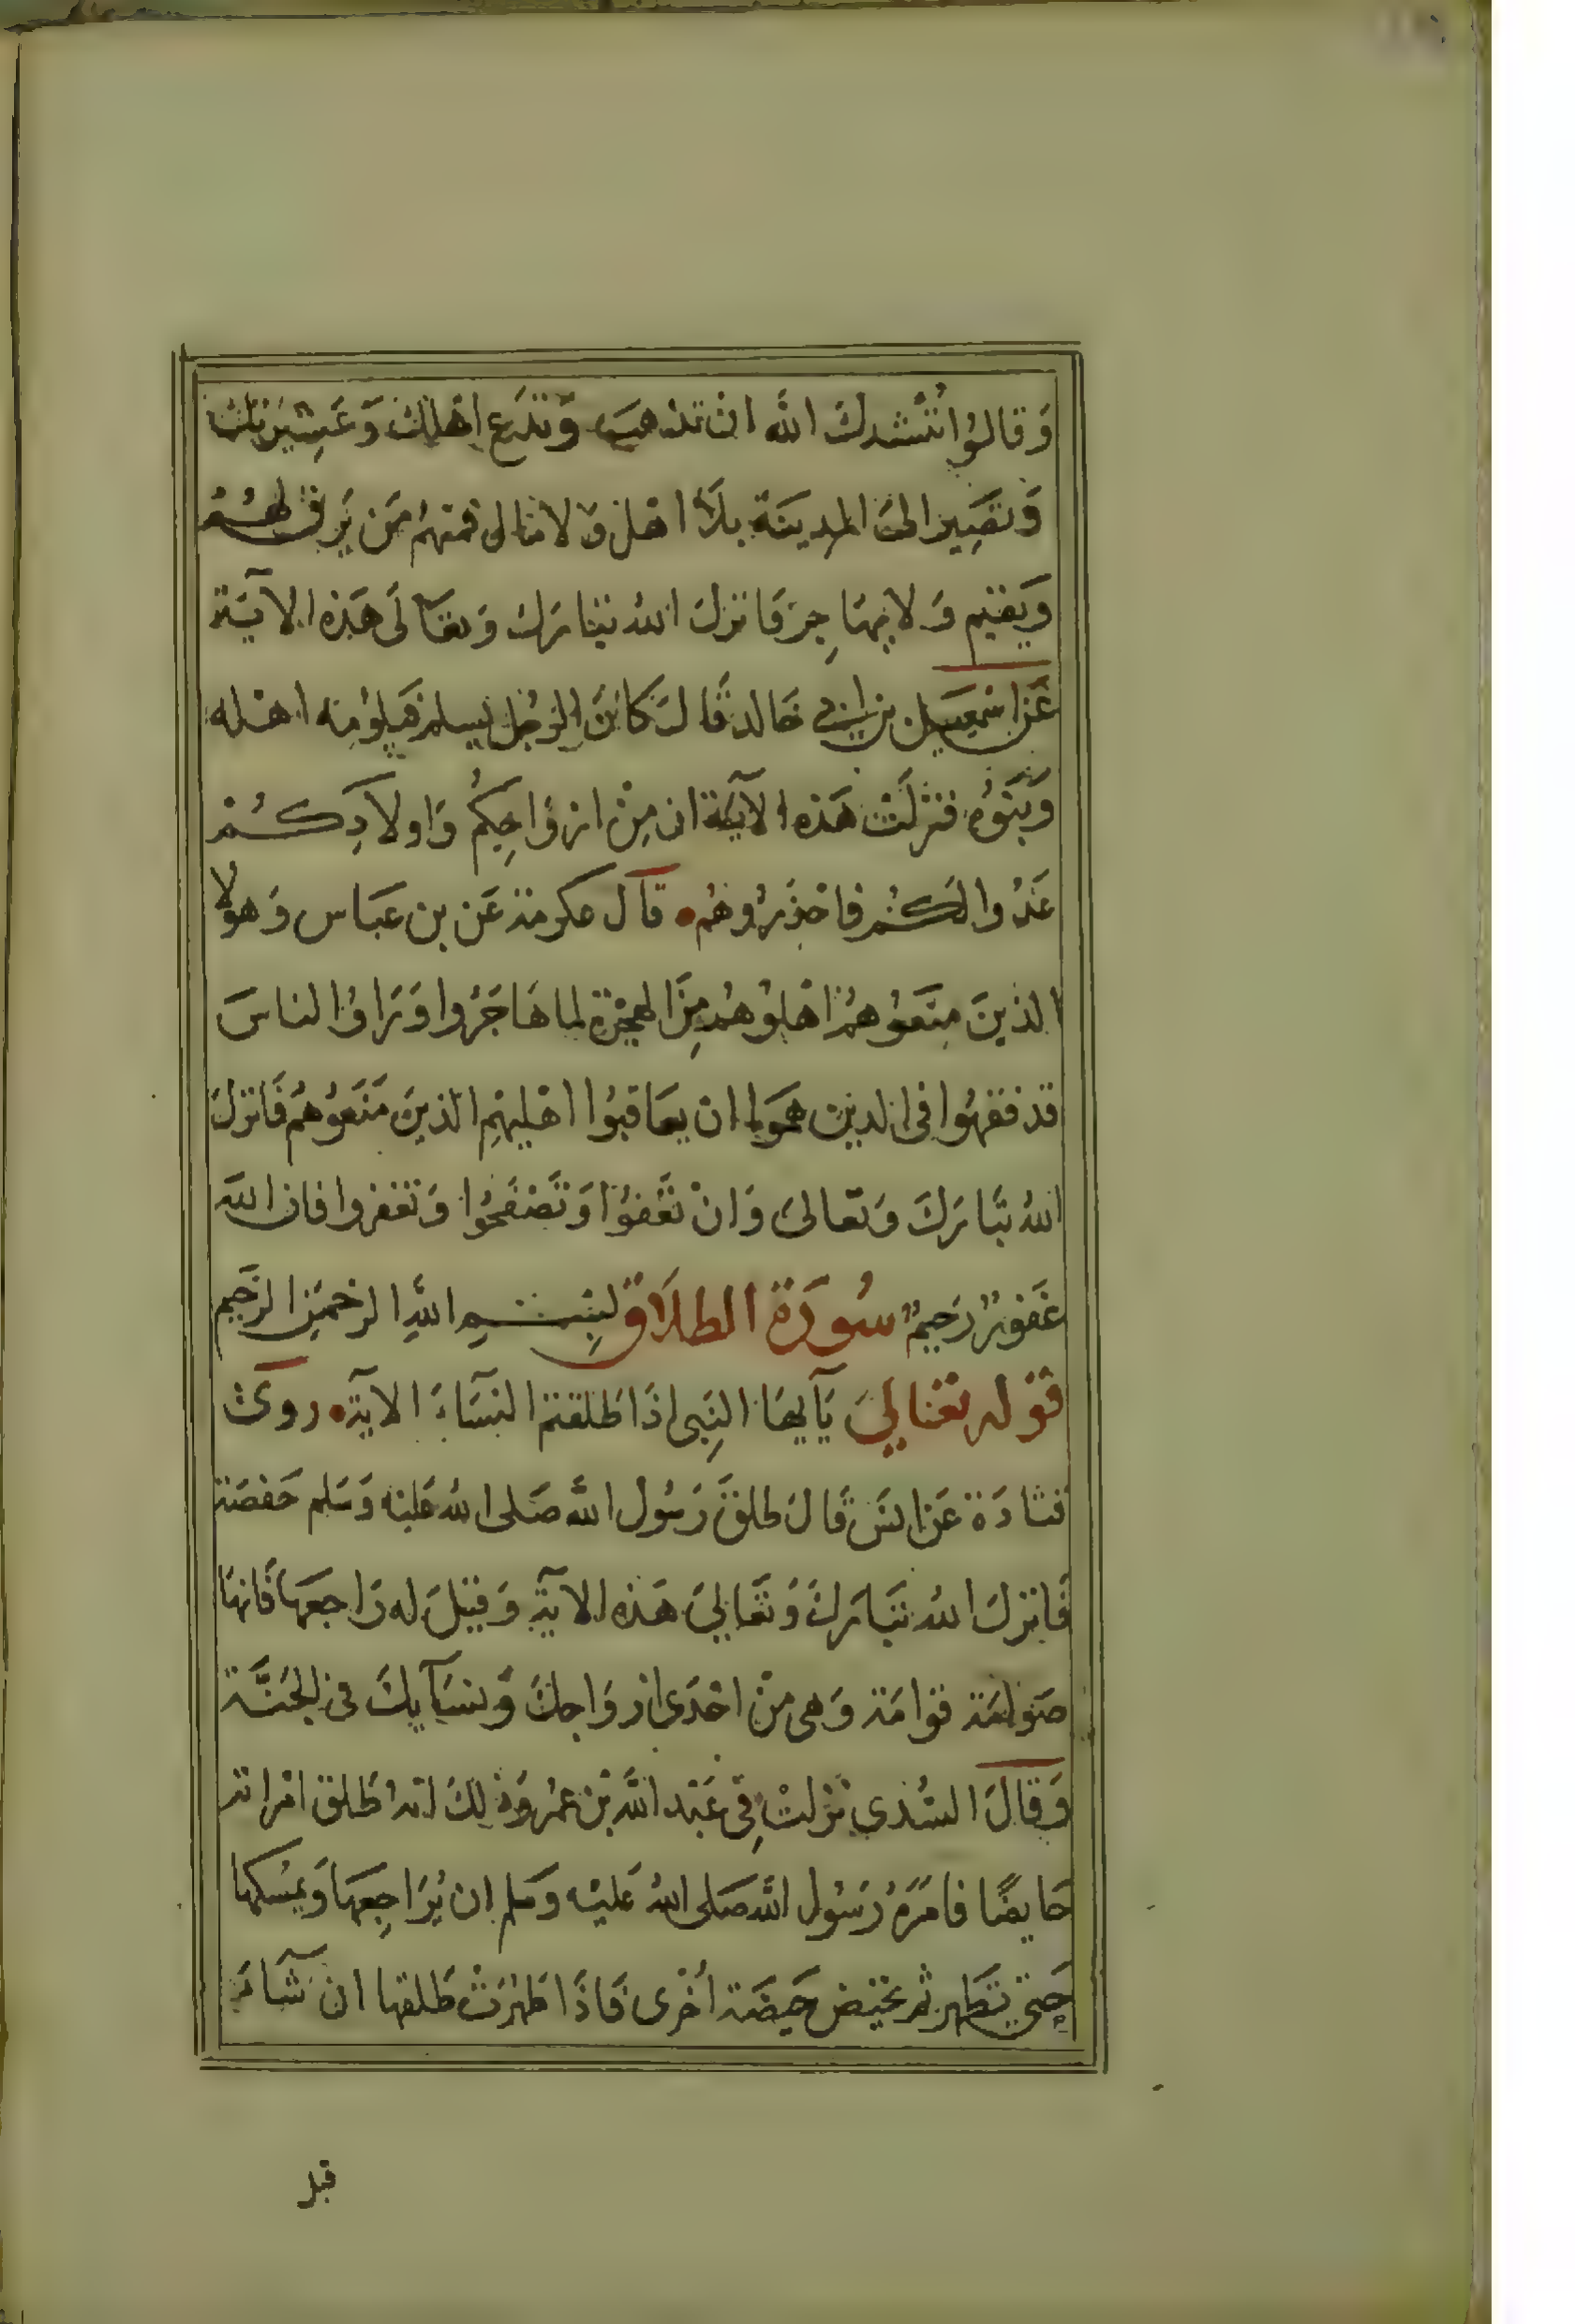 وَقالوُا نُنْشدكَ اللَّه ان تذهبَ وَّتدَع اهْلكَ وَّعَشِيرَتكَ
وَتصَيِر الىَ المدِينَة بلاَ اهْل وّلا مَال فمنهُم مَن يَرق لهُمْ
وَيقيم وَلا يهَاجِرَ فَانزلَ اللهُ تبَارَك وَتعَالىَ هَذه الآيَة
عَن اسْمَعِيل بن ابى خَالد قَالَ كانَ الرَجُل يسلم فَيلوُمِه اهْله
وَبَنوُه فنزلَتْ هَذه الآيَة ان مِنْ ازوَاجِكُم وَاولاَدِكُمْ
عَدُوا لَكُمْ فاحْذرُوهُم قَال عكرمة عَن بن عبَاس وَهوُلا
الذينَ منَعوُهمُ اهْلوُهُم مِنَ الهجْرَة لما هَاجَرُوا وَرَاوُا الناسَ
قد فقهُوا فى الدين همَوا ان يعَاقبُوا اهْليهُم الذينَ مَنَعوُهُم فَانزلَ
اللهُ تبَارَكَ وَتعَالىَ وَانْ تَعْفوُا وَتَصْفَحُوا وَتغفروا فان اللهَ
غَفورٌ رَحِيمٌ سُورَة الطلَاق بِسْمِ اللهِ الرحْمَنِ الرَّحِيم
قوْله تعَالىَ يَآيهَا النَبِى اذَا طَلقتم النسَاءَ الآية روىَ
قتادَة عَن انسَ قَالَ طلقَ رَسُول اللهِ صَلى اللهُ عَليْه وَسَلم حَفصَة
فَانزلَ اللهُ تبَارَكَ وَتعَالىَ هَذه الآية وَقيْلَ له رَاجعهَا فَانهَا
صَوامَة قوامَة وَهى منْ احْدَى ازوَاجكَ وَنسَآيكَ فى الجَنَّة
وَقَالَ السُدى نَزلَتْ فِى عَبْد اللهِ بْن عُمر وَذلكَ انهُ طَلق امْرَاته
حَايضًا فامَرَهُ رَسُول اللهِ صَلى اللهُ عَليْه وَسَلم ان يُرَاجِعهَا وَيمْسكهَا
حَتىَ تطَهر ثم تحَيْض حَيضَة اُخْرى فَاذَا طَهُرَتْ طَلقهَا ان شَآءَ
قبل